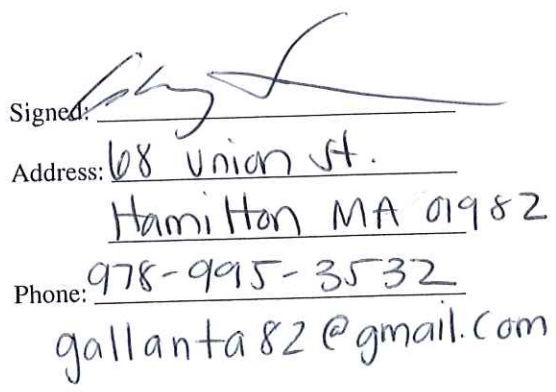 Signed:
Address: 68 Union St.
Hamilton MA 01982
Phone: 978-995-3532
gallanta82@gmail.com